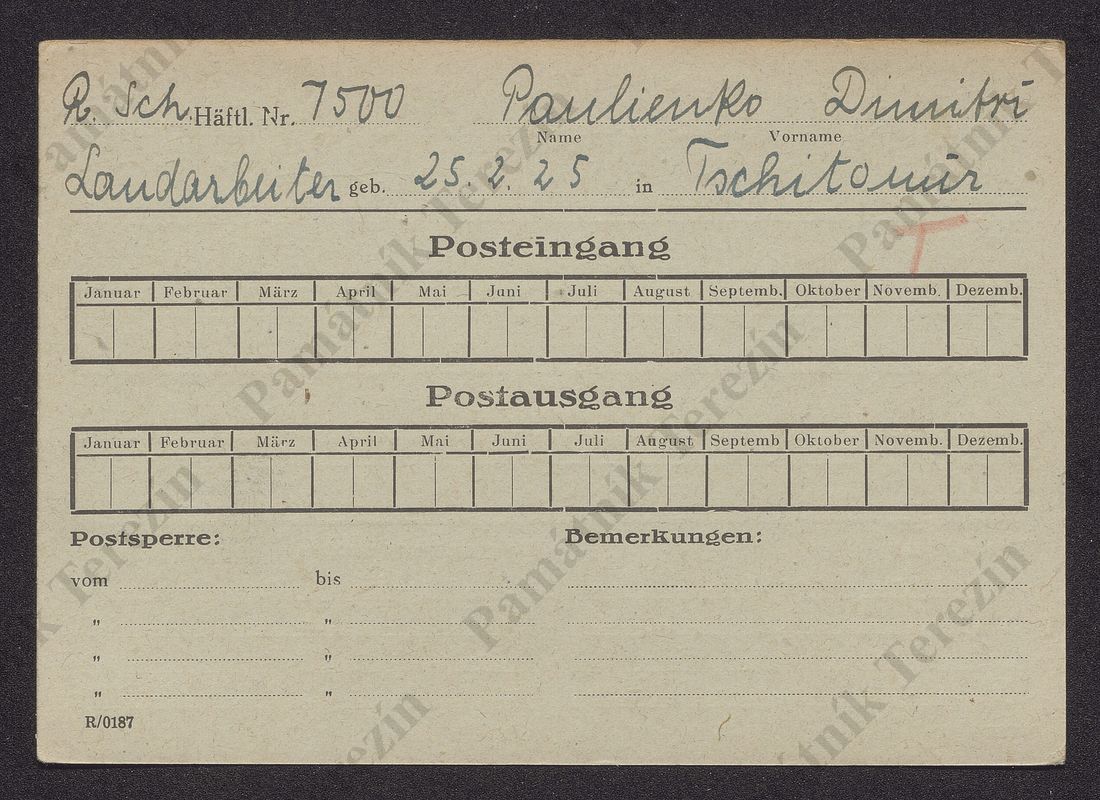 R. Sch. Häftl. Nr. 7500 Paulienko Dimitri
Name Vorname
Landarbeiter geb. 25. 2. 25 in Tschitomir
T
Posteingang
Januar Februar März April Mai Juni Juli August Septemb. Oktober Novemb. Dezemb.
Postausgang
Januar Februar März April Mai Juni Juli August Septemb Oktober Novemb. Dezemb.
Postsperre: Bemerkungen:
vom bis
" "
" "
" "
R/0187
Památník Terezín
Památník Terezín
Památník Terezín
Památník Terezín